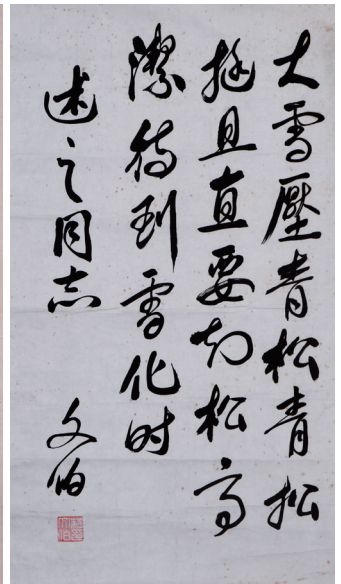 大雪壓青松青松
挺且直要知松高
潔待到雪化时
述之同志
文伯